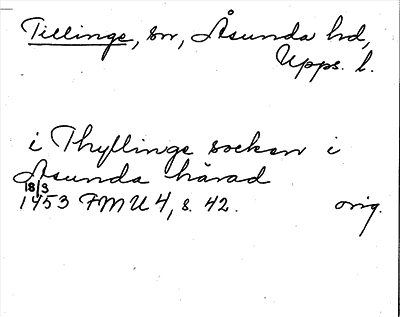 Tillinge, sn, Åsunda hd,
Upps. l.
i Thyllinge socken i
Åsunda härad
18/3
1453 FMU 4, s. 42. orig.